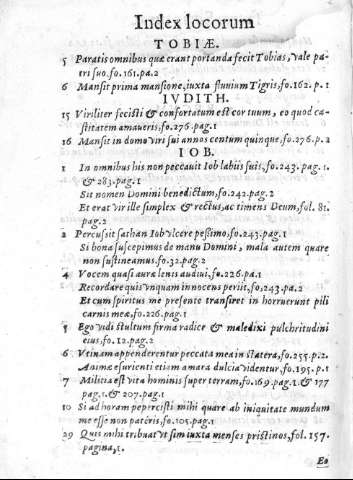 Index locorum
TOBIÆ.
5 Paratis omnibus quæ crant portanda fecit Tobias, vale pa-
tri suo.fo.161.pa.2
6 Mansit prima mansione, iuxta fluuium Tigris, fo.162. p.1
IVDITH.
15 Viriliter fecisti & confortatum est cor tuum, eo quod ca-
stitatem amaueris; fo.276 .pag.1
16 Mansit in domo viri sui annos centum quinque, fo.276. p.2
IOB.
1 In omnibus his non peccauit Iob labiis suis, fo.243. pag.1.
& 283. pag.1
Sit nomen Domini benedictum, fo.242.pag.2
Et erat vir ille simplex & rectus, ac timens Deum, fol.81.
pag.2
2 Percussit sathan Iob vlcere pessimo, fo.243.pag.1
Si bona suscepimus de manu Domini, mala autem quare
non sustineamus.fo.32.pag.2
4 Vocem quasi auræ lenis audiui, fo.226.pa.1
Recordare quis vnquam innocens periit, fo.243.pa.2
Et cum spiritus me presente transiret in horruerunt pili
carnis meæ, fo.226.pag.1
5 Ego vidi stultum firma radice & maledixi pulchritudini
eius, fo.12.pag.2
6 Vtinam appenderentur peccata mea in statera, fo.255.p.2.
Animæ esurienti etiam amara dulcia videntur, fo.195.p.1
7 Militia est vita hominis super terram, fo.169.pag.1. & 177
pag.1. & 207.pag.1
10 Si ad horam pepercisti mihi quare ab iniquitate mundum
me esse non pateris, fo.105.pag.1
29 Quis mihi tribuat vt sim iuxta menses pristinos, fol.157.
pagina, 1.
Eo